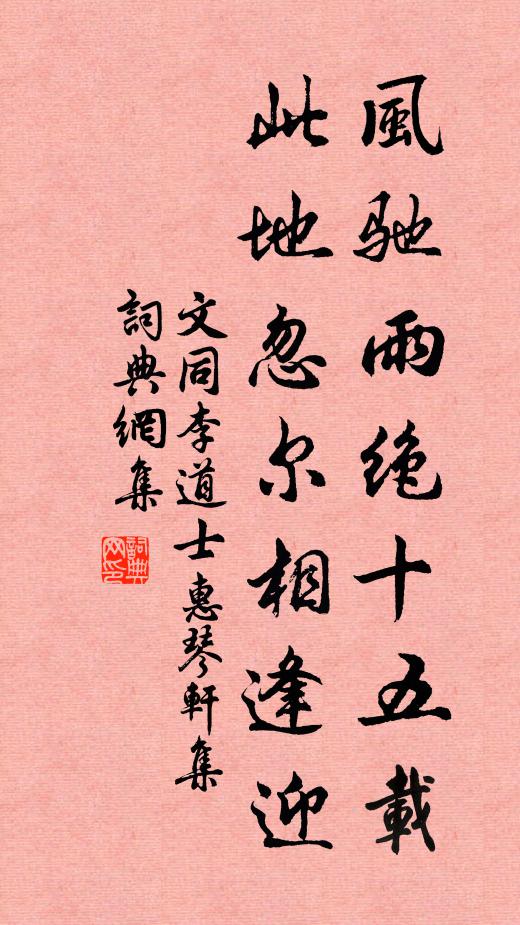 風驰雨绝十五載
此地忽尔相逢迎
文同李道士惠琴軒集
詞典網集
詞典
网印